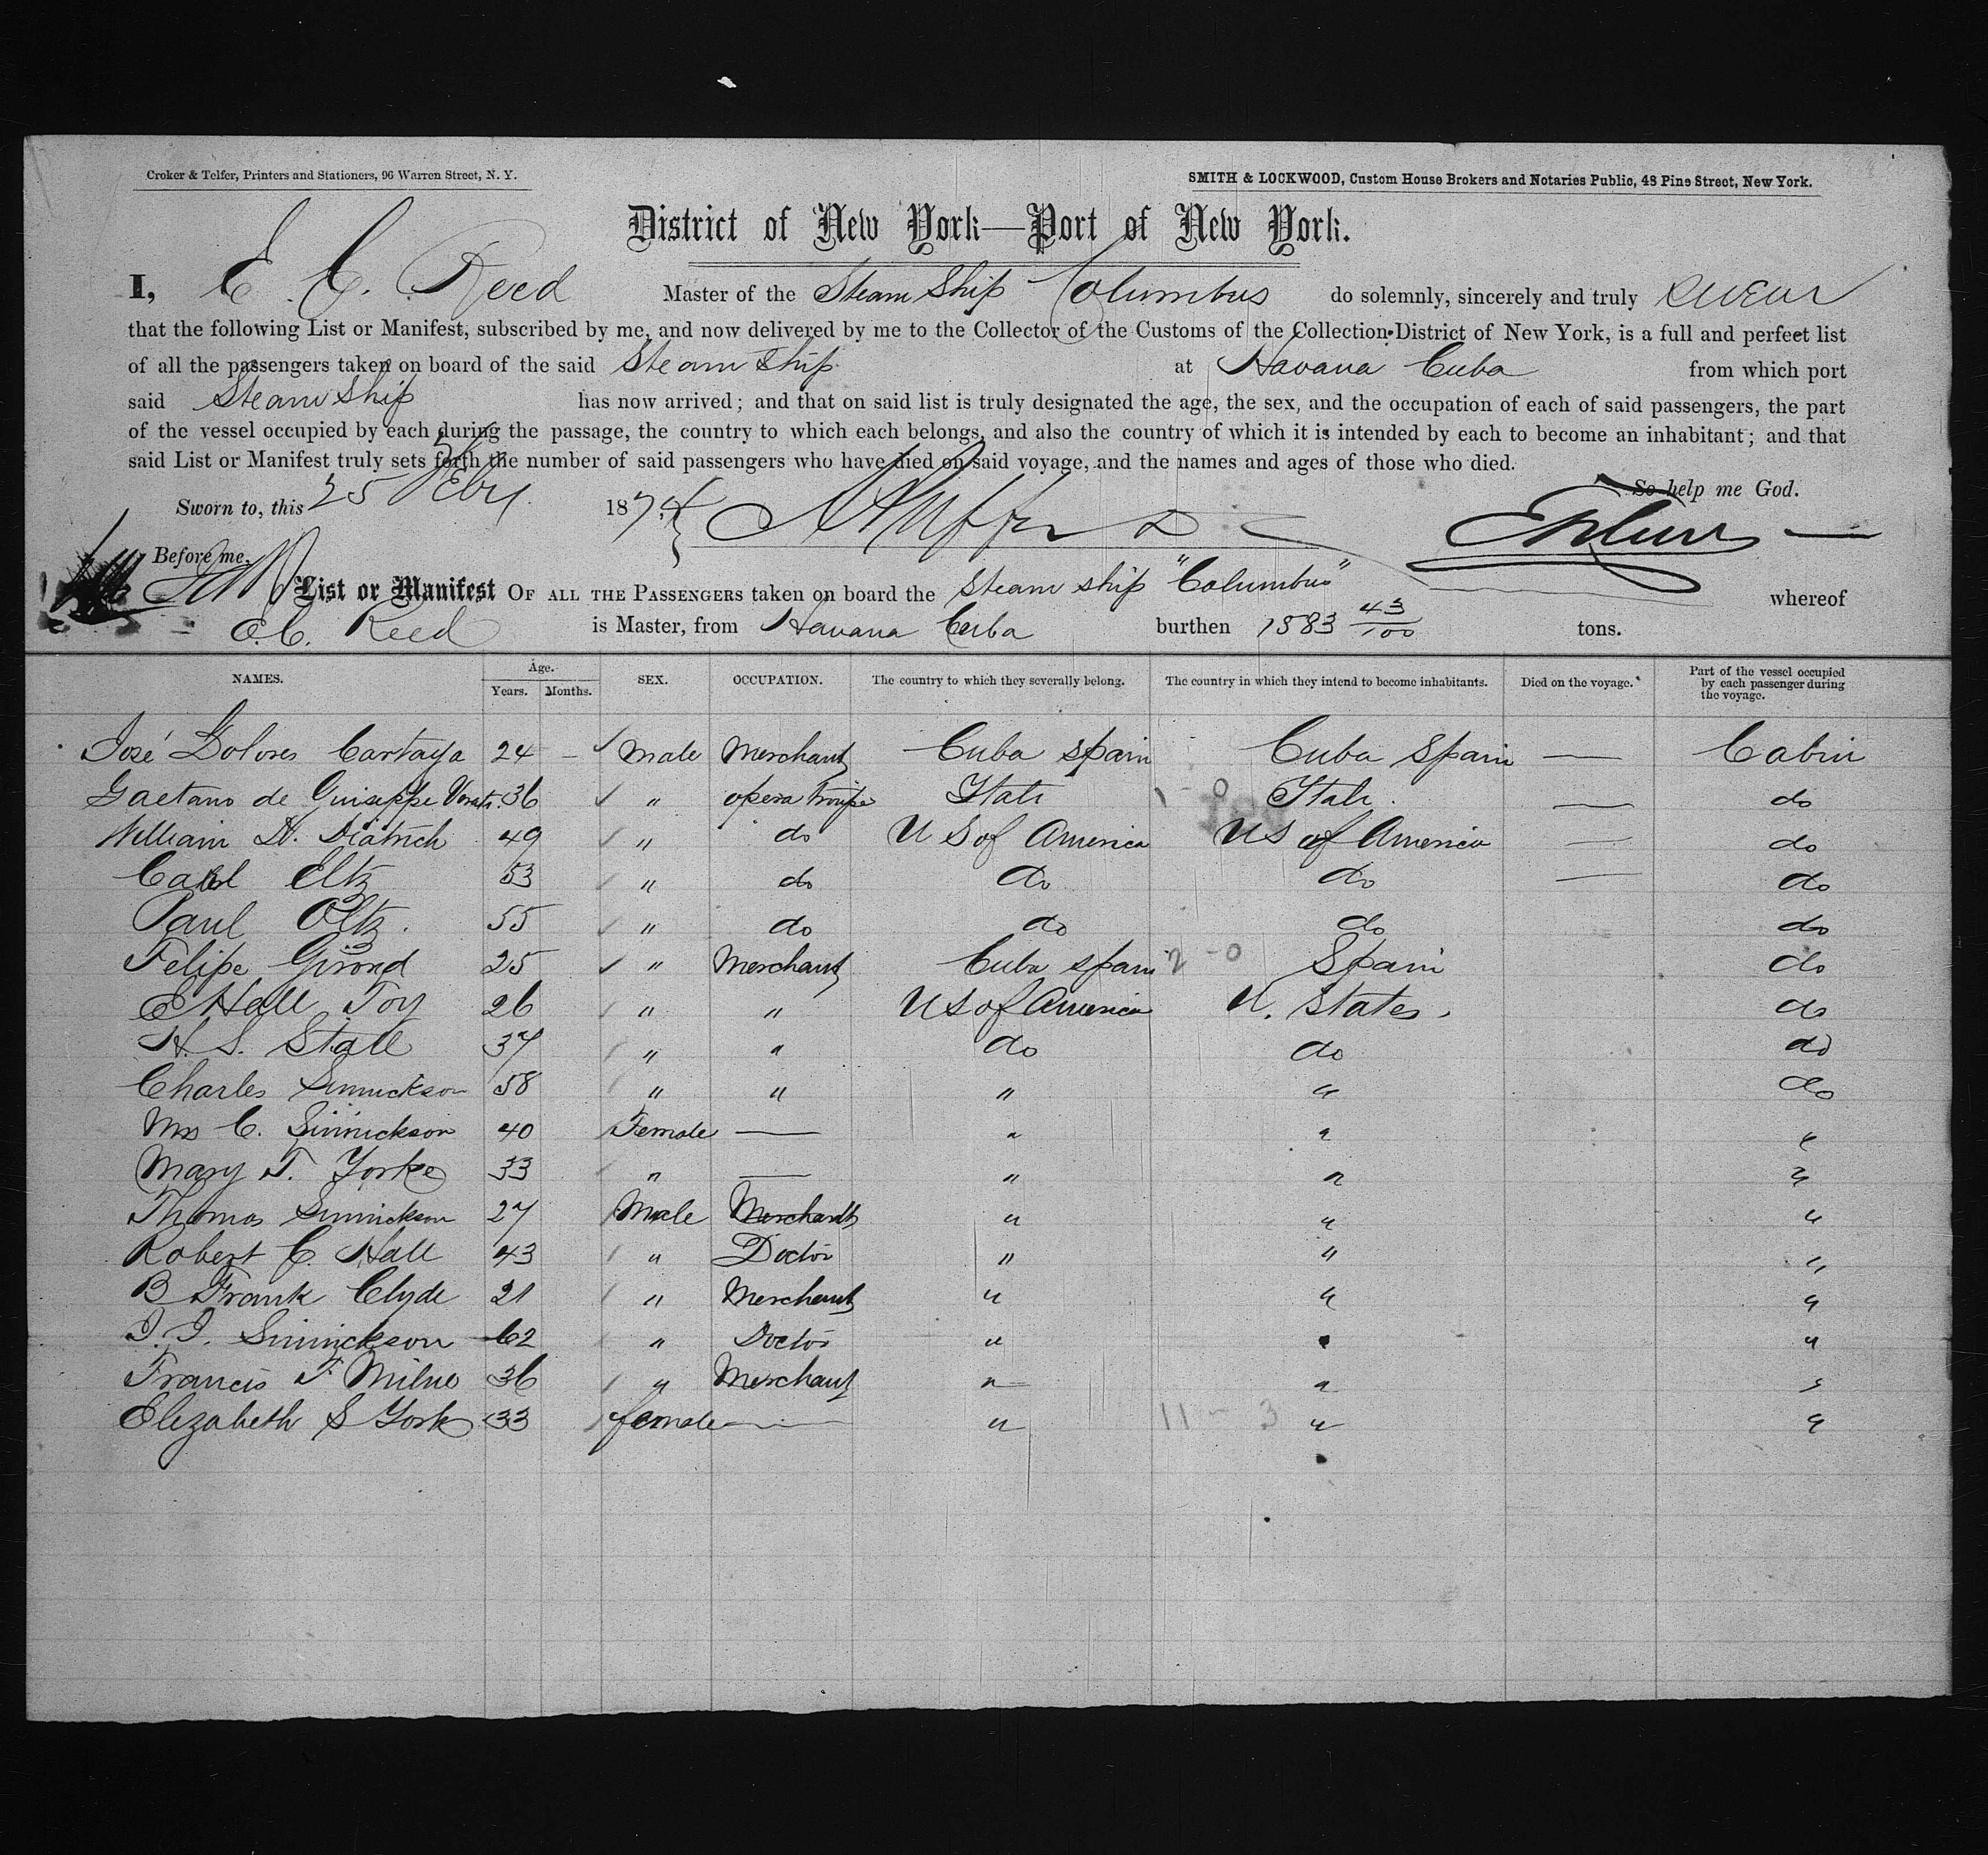 Croker & Telfer, Printers and Stationers, 96 Warren Street, N. Y. SMITH & LOCKWOOD, Custom House Brokers and Notaries Public, 48 Pine Street, New York.
District of New York—Port of New York.
I, E. C. Reed Master of the Steam Ship Columbus do solemnly, sincerely and truly swear
that the following List or Manifest, subscribed by me, and now delivered by me to the Collector of the Customs of the Collection District of New York, is a full and perfect list
of all the passengers taken on board of the said Steam Ship at Havana Cuba from which port
said Steam Ship has now arrived; and that on said list is truly designated the age, the sex, and the occupation of each of said passengers, the part
of the vessel occupied by each during the passage, the country to which each belongs, and also the country of which it is intended by each to become an inhabitant; and that
said List or Manifest truly sets forth the number of said passengers who have died on said voyage, and the names and ages of those who died.
So help me God.
Sworn to, this 25 Feby. 1874
Before me,
List or Manifest OF ALL THE PASSENGERS taken on board the Steam ship "Columbus" whereof
E. C. Reed is Master, from Havana Cuba burthen 1883 43/100 tons.
NAMES. Age. Years. Months. SEX. OCCUPATION. The country to which they severally belong. The country in which they intend to become inhabitants. Died on the voyage. Part of the vessel occupied by each passenger during the voyage.
José Dolores Cartaya 24 — male Merchant Cuba Spain Cuba Spain — Cabin
Gaetano de Guiseppe 36 " opera troupe Itali 1 - 0 Itali. — do
William H. Diatrich 49 " do U S of America US of America — do
Carl Eltz 53 " do do do — do
Paul Oltz. 55 " do do do do
Felipe Girond 25 " Merchant Cuba Spain 2 - 0 Spain do
E Hall Toy 26 " " US of America U. States. do
H. S. Stall 37 " " do do do
Charles Sinnickson 58 " " " " do
Mrs C. Sinnickson 40 Female — " " "
Mary T. Yorke 33 " — " " "
Thomas Sinnickson 27 Male Merchant " " "
Robert C. Hall 43 " Doctor " " "
B Frank Clyde 21 " Merchant " " "
J. J. Sinnickson 62 " Doctor " " "
Francis F Milne 36 " Merchant " " "
Elizabeth S York 33 female — " 11 - 3 " "